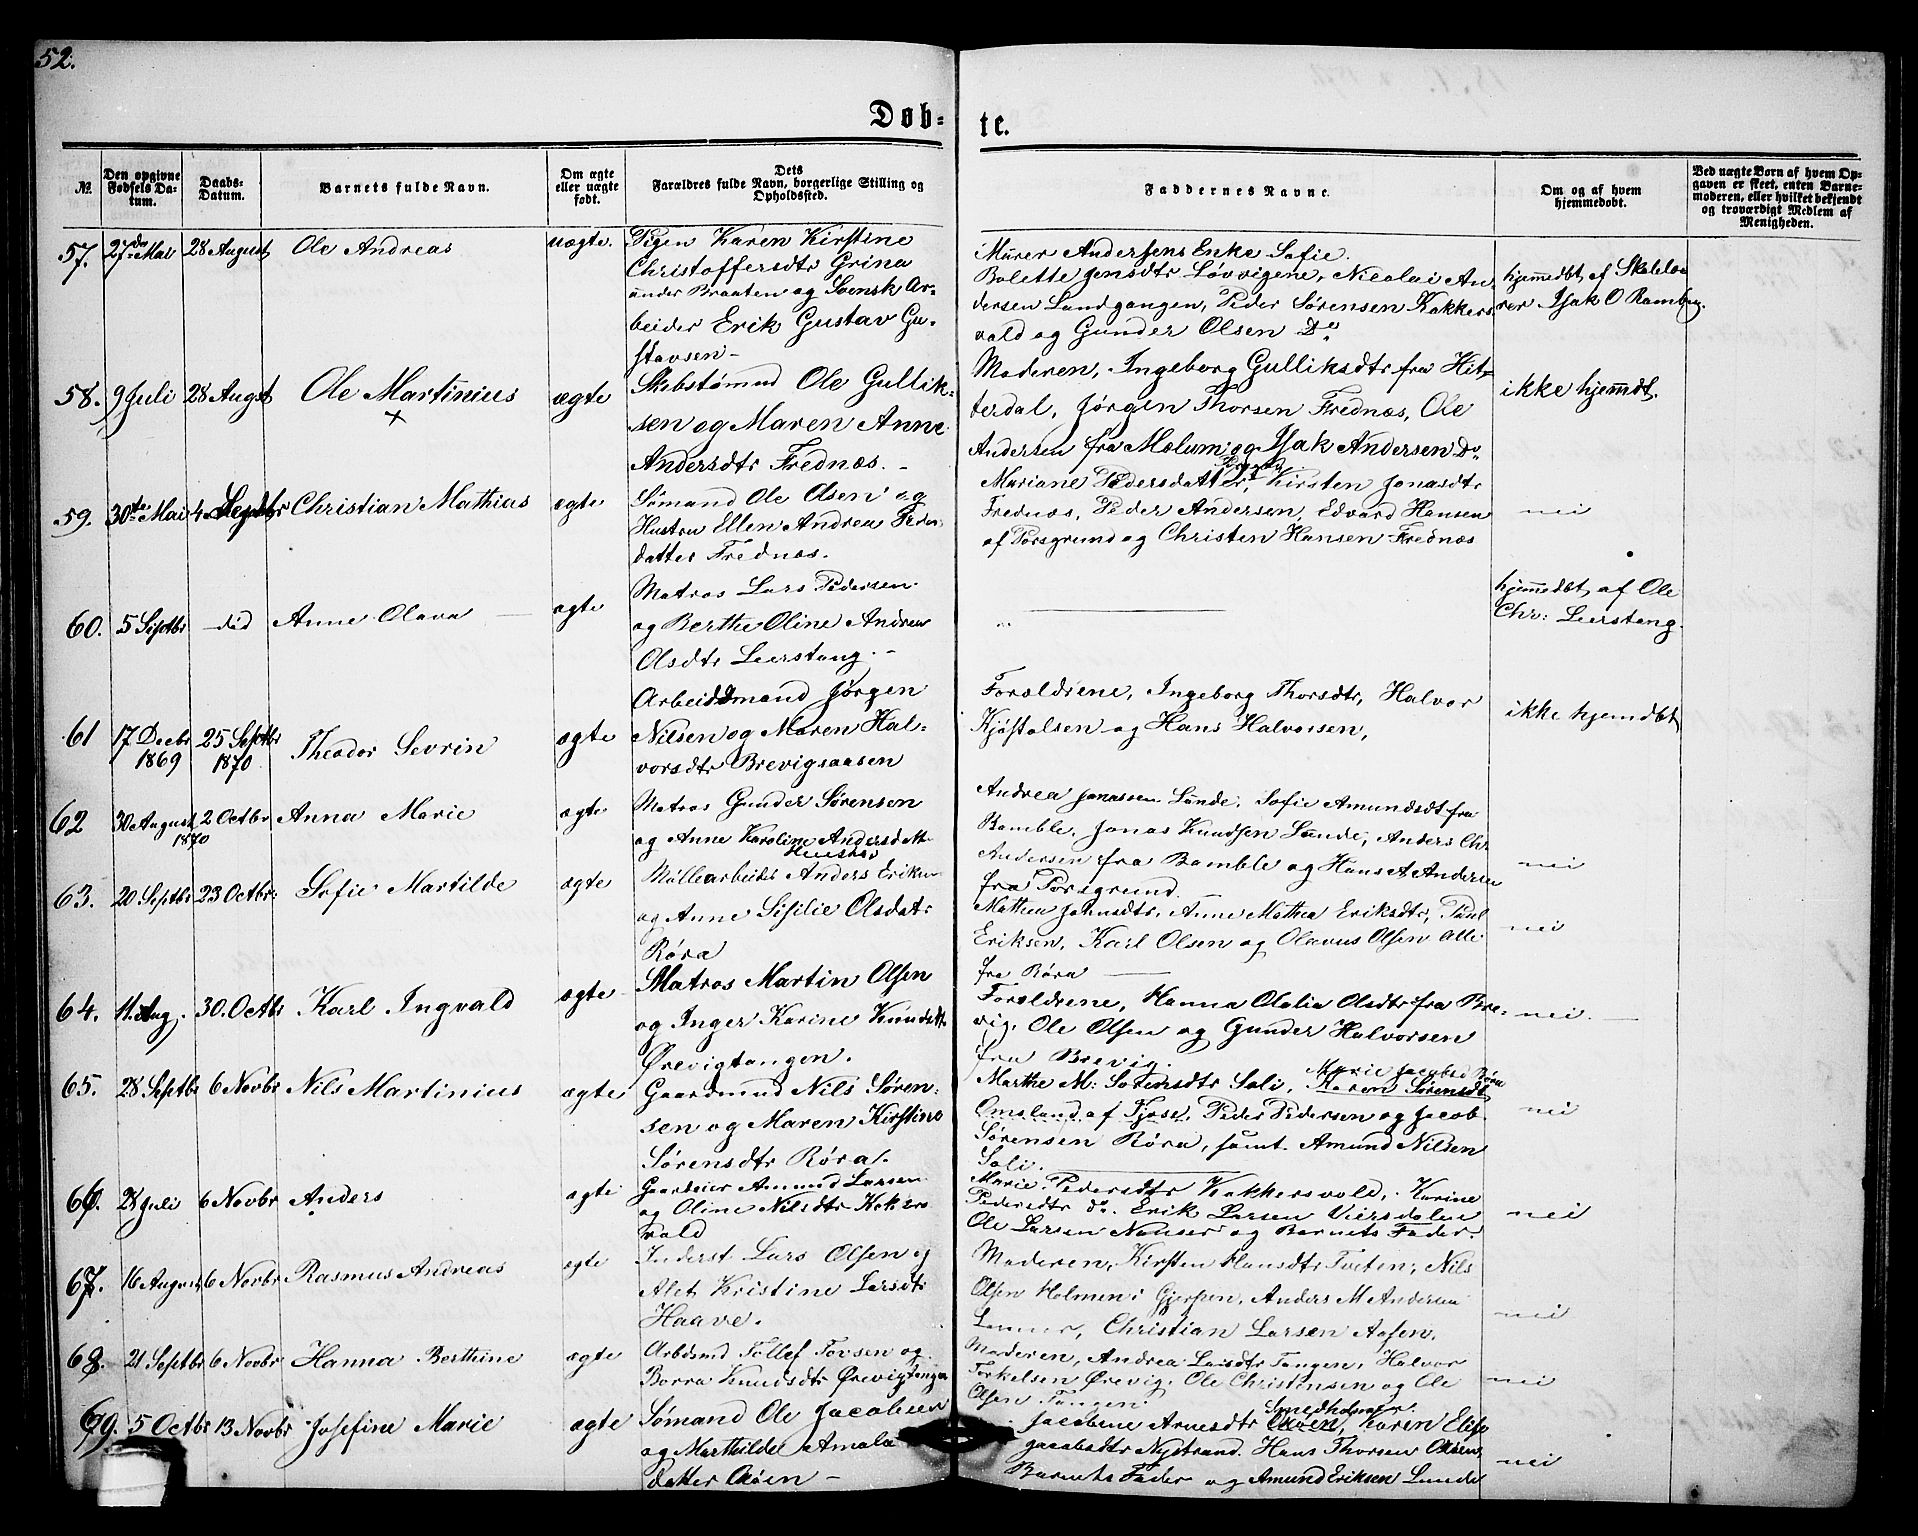 52.
Døb-
te.
№
Den opgivne
Fødsels Da-
tum.
Daabs-
Datum.
Barnets fulde Navn.
Om ægte
eller uægte
født.
Dets
Forældres fulde Navn, borgerlige Stilling og
Opholdssted.
Faddernes Navne.
Om og af hvem
hjemmedøbt.
Ved uægte Børn af hvem Op-
gaven er skeet, enten Barne-
moderen, eller hvilket bekjendt
og troværdigt Medlem af
Menigheden.
57.
27de Mai
28 August
Ole Andreas
uægte.
Pigen Karen Kirstine
Christoffersdtr Grina
under Braaten og Svensk Ar-
beider Erik Gustav Gu-
stavsen-
Murer Andersens Enke Sofie.
Bolette Jensdtr Løvvigene, Nicolai An
dersen Landgangen, Peder Sørensen Kokkers
vold og Gunder Olsen Do
hjemmdbt af Skolelæ
rer Isak O Ramberg.
58.
9 Juli
28 Augst
Ole Martinius
+
ægte
Skibstømmd Ole Gullik-
sen og Maren Anne
Andersdtr Frednæs. -
Moderen, Ingeborg Gulliksdtr fra Hit-
terdal, Jørgen Thorsen Frednæs, Ole
Andersen fra Mælum og Isak Andersen Do
ikke hjemmdt.
59.
30te Mai
4 Septbr
Christian Mathias
ægte
Sømand Ole Olsen og
Hustru Ellen Andrea Peder
datter Frednæs.
Mariane Pedersdatter, Kirsten Jonasdtr
Frednæs, Peder Andersen, Edvard Hansen
af Porsgrund og Christen Hansen Frednæs
nei
60.
5 Septbr
død
Anne Olava
ægte
Matros Lars Pedersen
og Berthe Oline Andrea
Olsdtr Leerstang. -
"
hjemmdbt af Ole
Chr: Leerstang.
61
17 Decbr
1869
25 Septbr
1870
Theodor Sevrin
ægte
Arbeidsmand Jørgen
Nilsen og Maren Hal-
vorsdtr Brevigsaasen
Forældrene, Ingeborg Thorsdtr, Halvor
Kjøstolsen og Hans Halvorsen,
ikke hjemdbt
62
30 August
1870
2 Octbr
Anna Marie
ægte
Matros Gunder Sørensen
og Anne Karoline Andersdtt
Andrea Jonassen Lunde, Sofie Amundsdt fra
Bamble, Jonas Knudsen Lunde, Anders Chr.
Andersen fra Bamble og Hans A Andersen
fra Porsgrund.
nei
63.
20 Septbr
23 Octbr:
Sofie Martilde
ægte
Møllearbeider Anders Eriksen
og Anne Sisilie Olsdatr
Røra
Mathea Johnsdtr, Anne Mathea Eriksdtr, Paul
Eriksen, Karl Olsen og Olavus Olsen Alle
fra Røra
nei
64.
11. Aug.
30. Octbr
Karl Ingvald
ægte
Matros Martin Olsen
og Inger Karine Knudsdtt.
Ørevigtangen.
Forældrene, Hanna Olalia Olsdtr fra Bre-
vig, Ole Olsen og Gunder Halvorsen
fra Brevig.
nei.
65.
28 Septbr
6 Novbr
Nils Martinius
ægte
Gaardmnd Nils Søren-
sen og Maren Kirstine
Sørensdtr Røra.
Marthe M: Sørensdtr Soli, Karen Sørensdt
Marie Jacobsd Røra
Omsland af Tjose, Peder Pedersen og Jacob
Sørensen Røra, samt Amund Nilsen
Soli.
nei
66.
28 Juli
6 Novbr
Anders
ægte
Gaardeier Amund Larsen
og Oline Nilsdtr Kokers
vold
Marie Pedersdtr Kokkersvold, Karine
Pedersdtr do. Erik Larsen Viersdalen
Ole Larsen Nenset og Barnets Fader.
nei
67.
16 August
6 Novbr
Rasmus Andreas
ægte
Inderst Lars Olsen og
Alet Kristine Larsdtr
Haave.
Moderen, Kirsten Hansdtr Tveten, Nils
Olsen Holmen i Gjerpen, Anders M Andersen
Christian Larsen Aasen.
nei
68.
21 Septbr
6 Novbr
Hanna Berthine
ægte
Arbdsmd Tollef Tovsen og
Borra Knudsdtr Ørevigtangen
Moderen, Andrea Larsdtr Tangen, Halvor
Torkelsen Ørevig, Ole Christensen og Ole
Olsen Tangen.
nei
69.
5 Octbr
13 Novbr
Josefine Marie
ægte
Sømand Ole Jacobsen
og Marthilde Amalie
datter Oxøen -
Smedholmen.
Jacobine Arnesdtr Oxøen, Karen Elise
Jacobsdtr Nystrand, Hans Thorsen Oxøen,
Barnets Fader og Amund Eriksen Lunde
nei